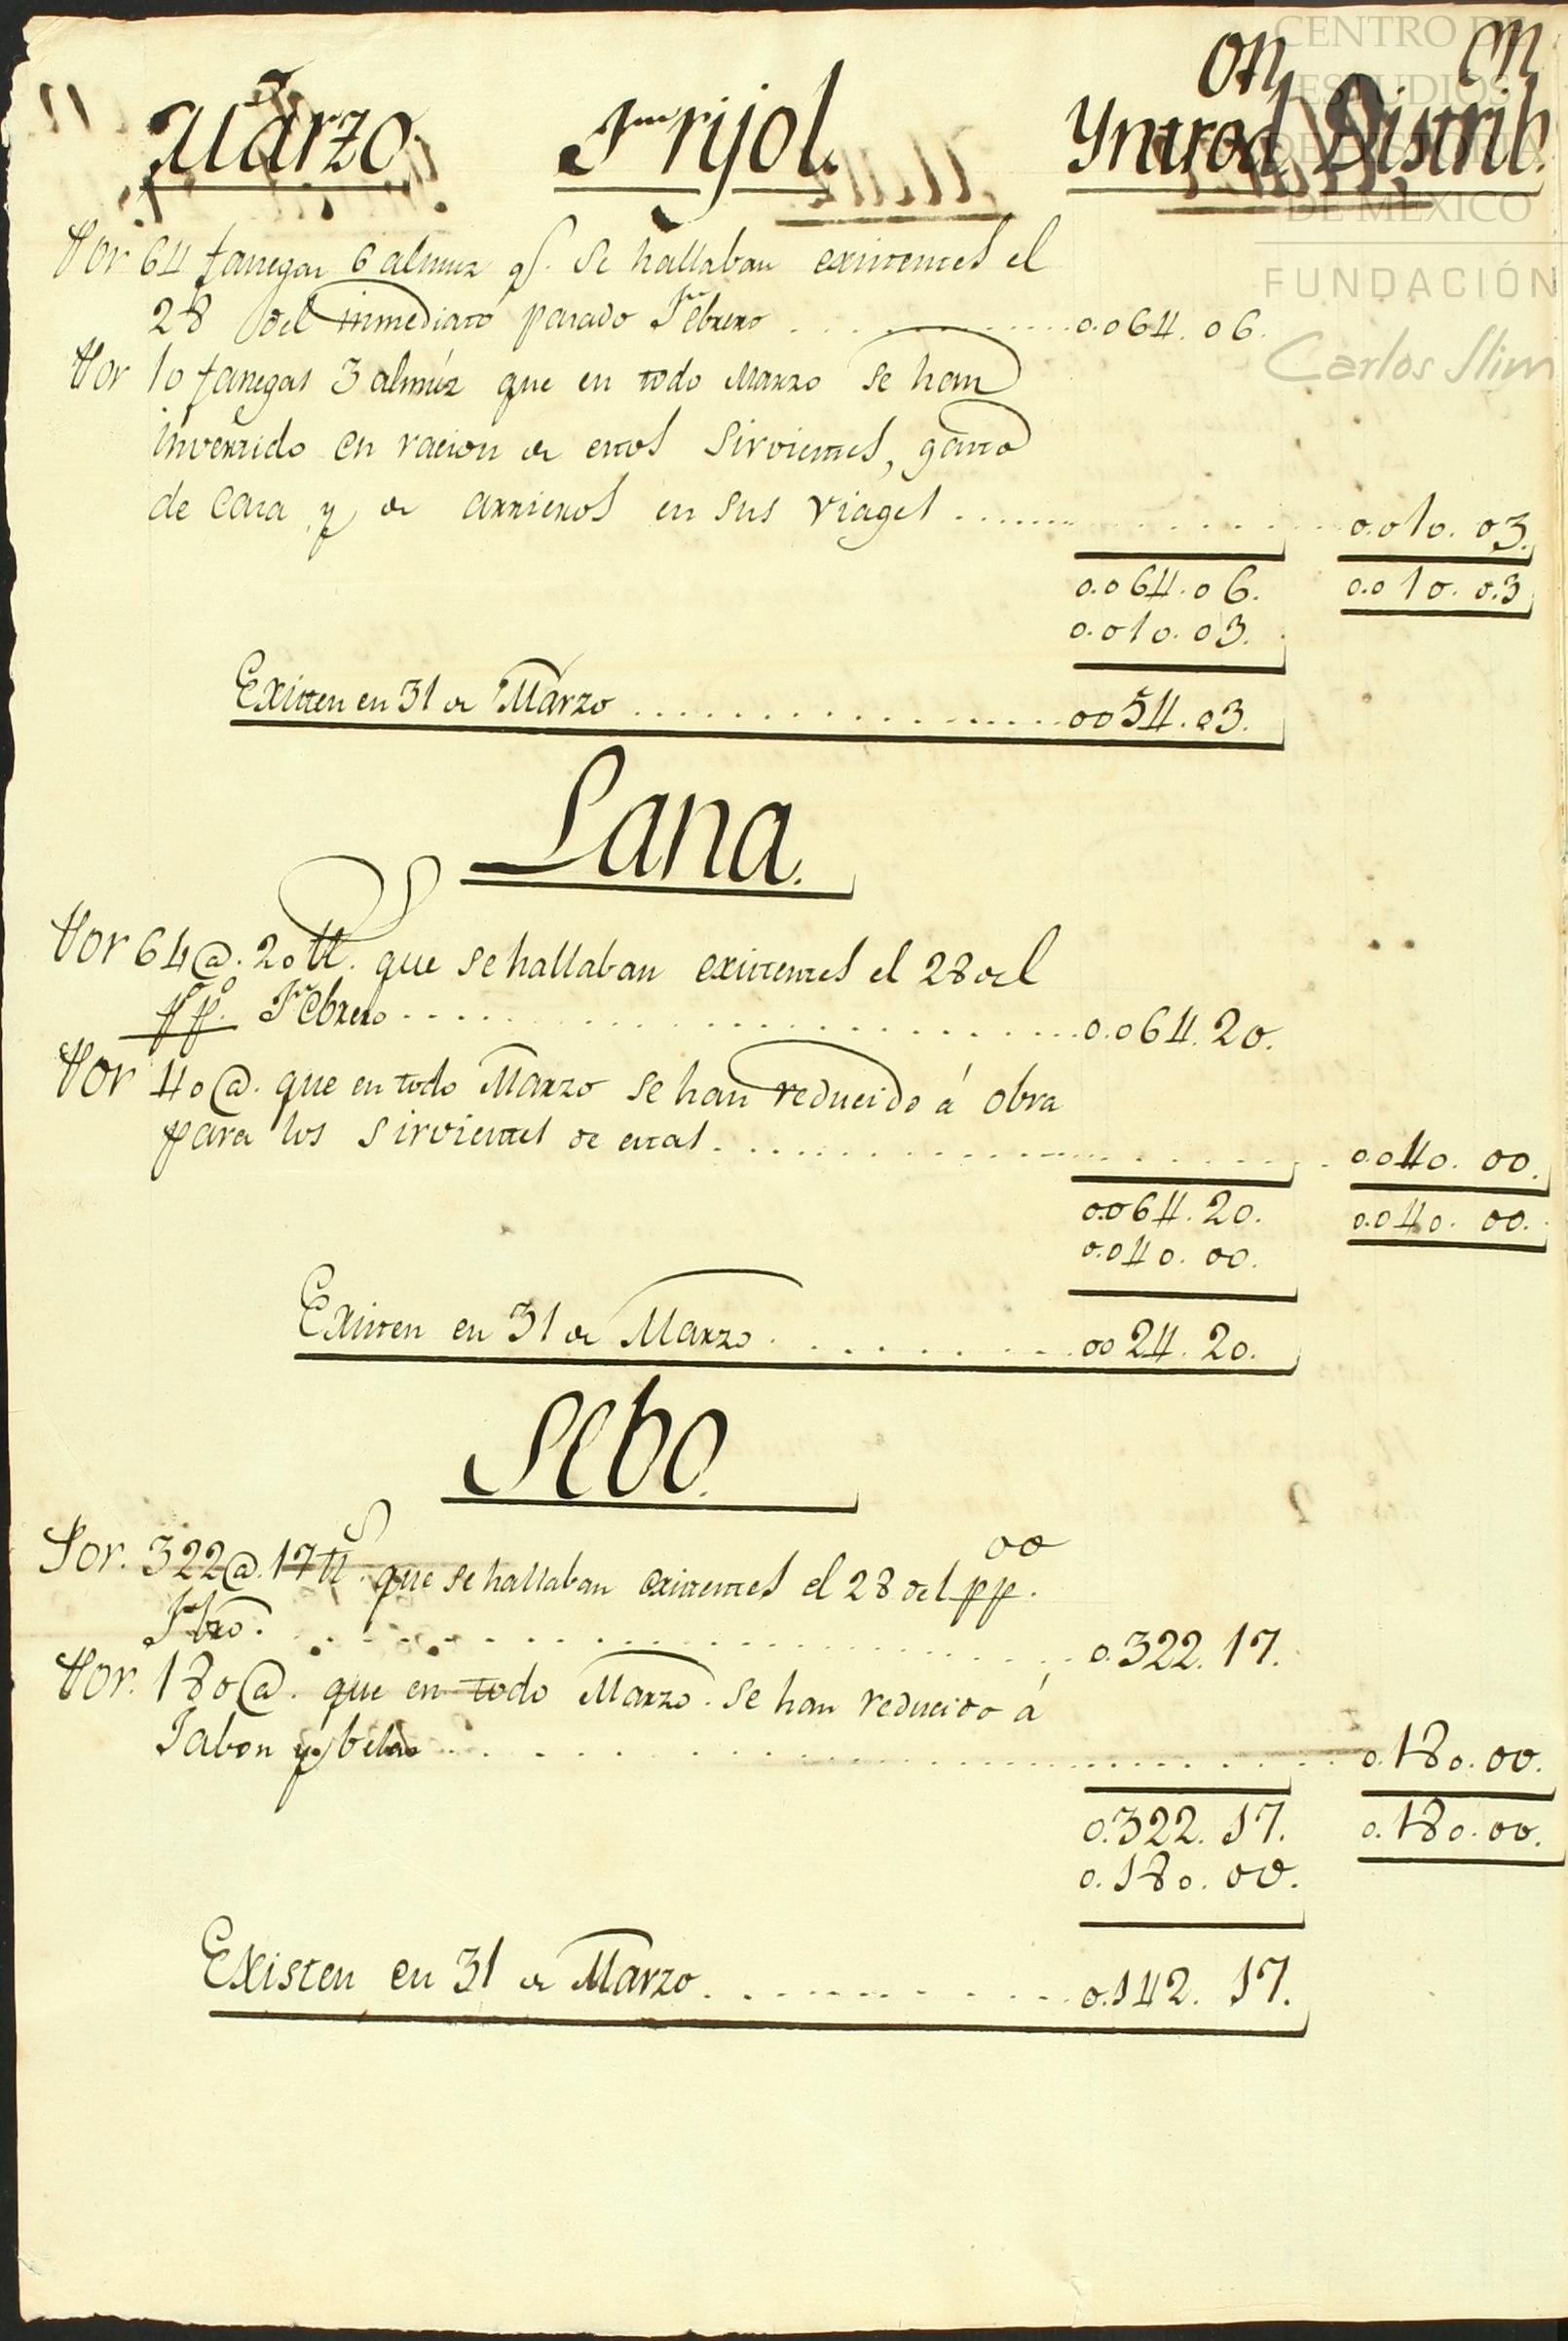 CENTRO DE
ESTUDIOS
DE HISTORIA
DE MÉXICO
FUNDACIÓN
Carlos Slim
Marzo. Frijol. Yntrod.on Distrib.on
Por 64 fanegas 6 almuz q.e se hallaban existentes el
28 del inmediato pasado Febrero . . . 0.064. 06.
Por 10 fanegas 3 almúz que en todo Marzo se han
invertido en racion de estos Sirvientes, gasto
de Casa y de arrieros en sus viages . . . 0.010. 03.
0.064. 06. 0.010. 03
0.010. 03.
Existen en 31 de Marzo . . . 0054. 03.
Lana.
Por 64 @. 20 tt.s que se hallaban existentes el 28 del
p.o p.o Febrero . . . 0.064. 20.
Por 40 @. que en todo Marzo se han reducido á obra
para los sirvientes de estas . . . 0.040. 00.
0.064. 20. 0.040. 00.
0.040. 00.
Existen en 31 de Marzo . . . 0024. 20.
Sebo.
Por. 322 @. 17 tt.s que se hallaban existentes el 28 del p.o p.o
Fbro. . . . 0.322. 17.
Por. 180 @. que en todo Marzo. se han reducido á
Jabon y belas . . . 0.180. 00.
0.322. 17. 0.180. 00.
0.180. 00.
Existen en 31 de Marzo . . . 0.142. 17.